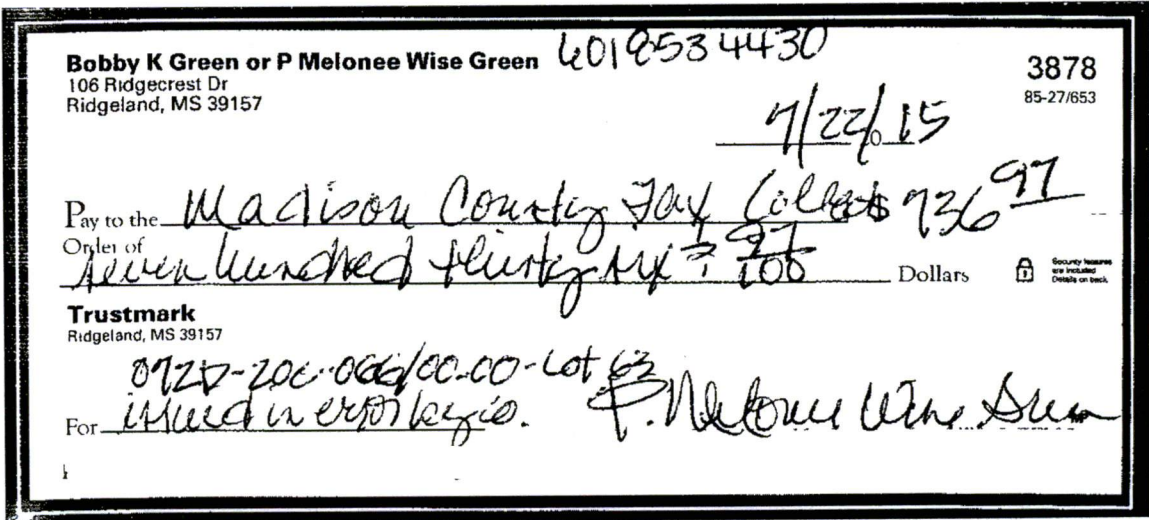 Bobby K Green or P Melonee Wise Green 6018534430
106 Ridgecrest Dr
Ridgeland, MS 39157
3878
85-27/653
7/22/15
Pay to the Madison County Tax Collect $ 736 97
Order of
seven hundred thirty six & 97/100 Dollars
Security features
are included
Details on back
Trustmark
Ridgeland, MS 39157
072D-20C-066/00.00-Lot 63
For issued in error
P. Melonee Wise Green